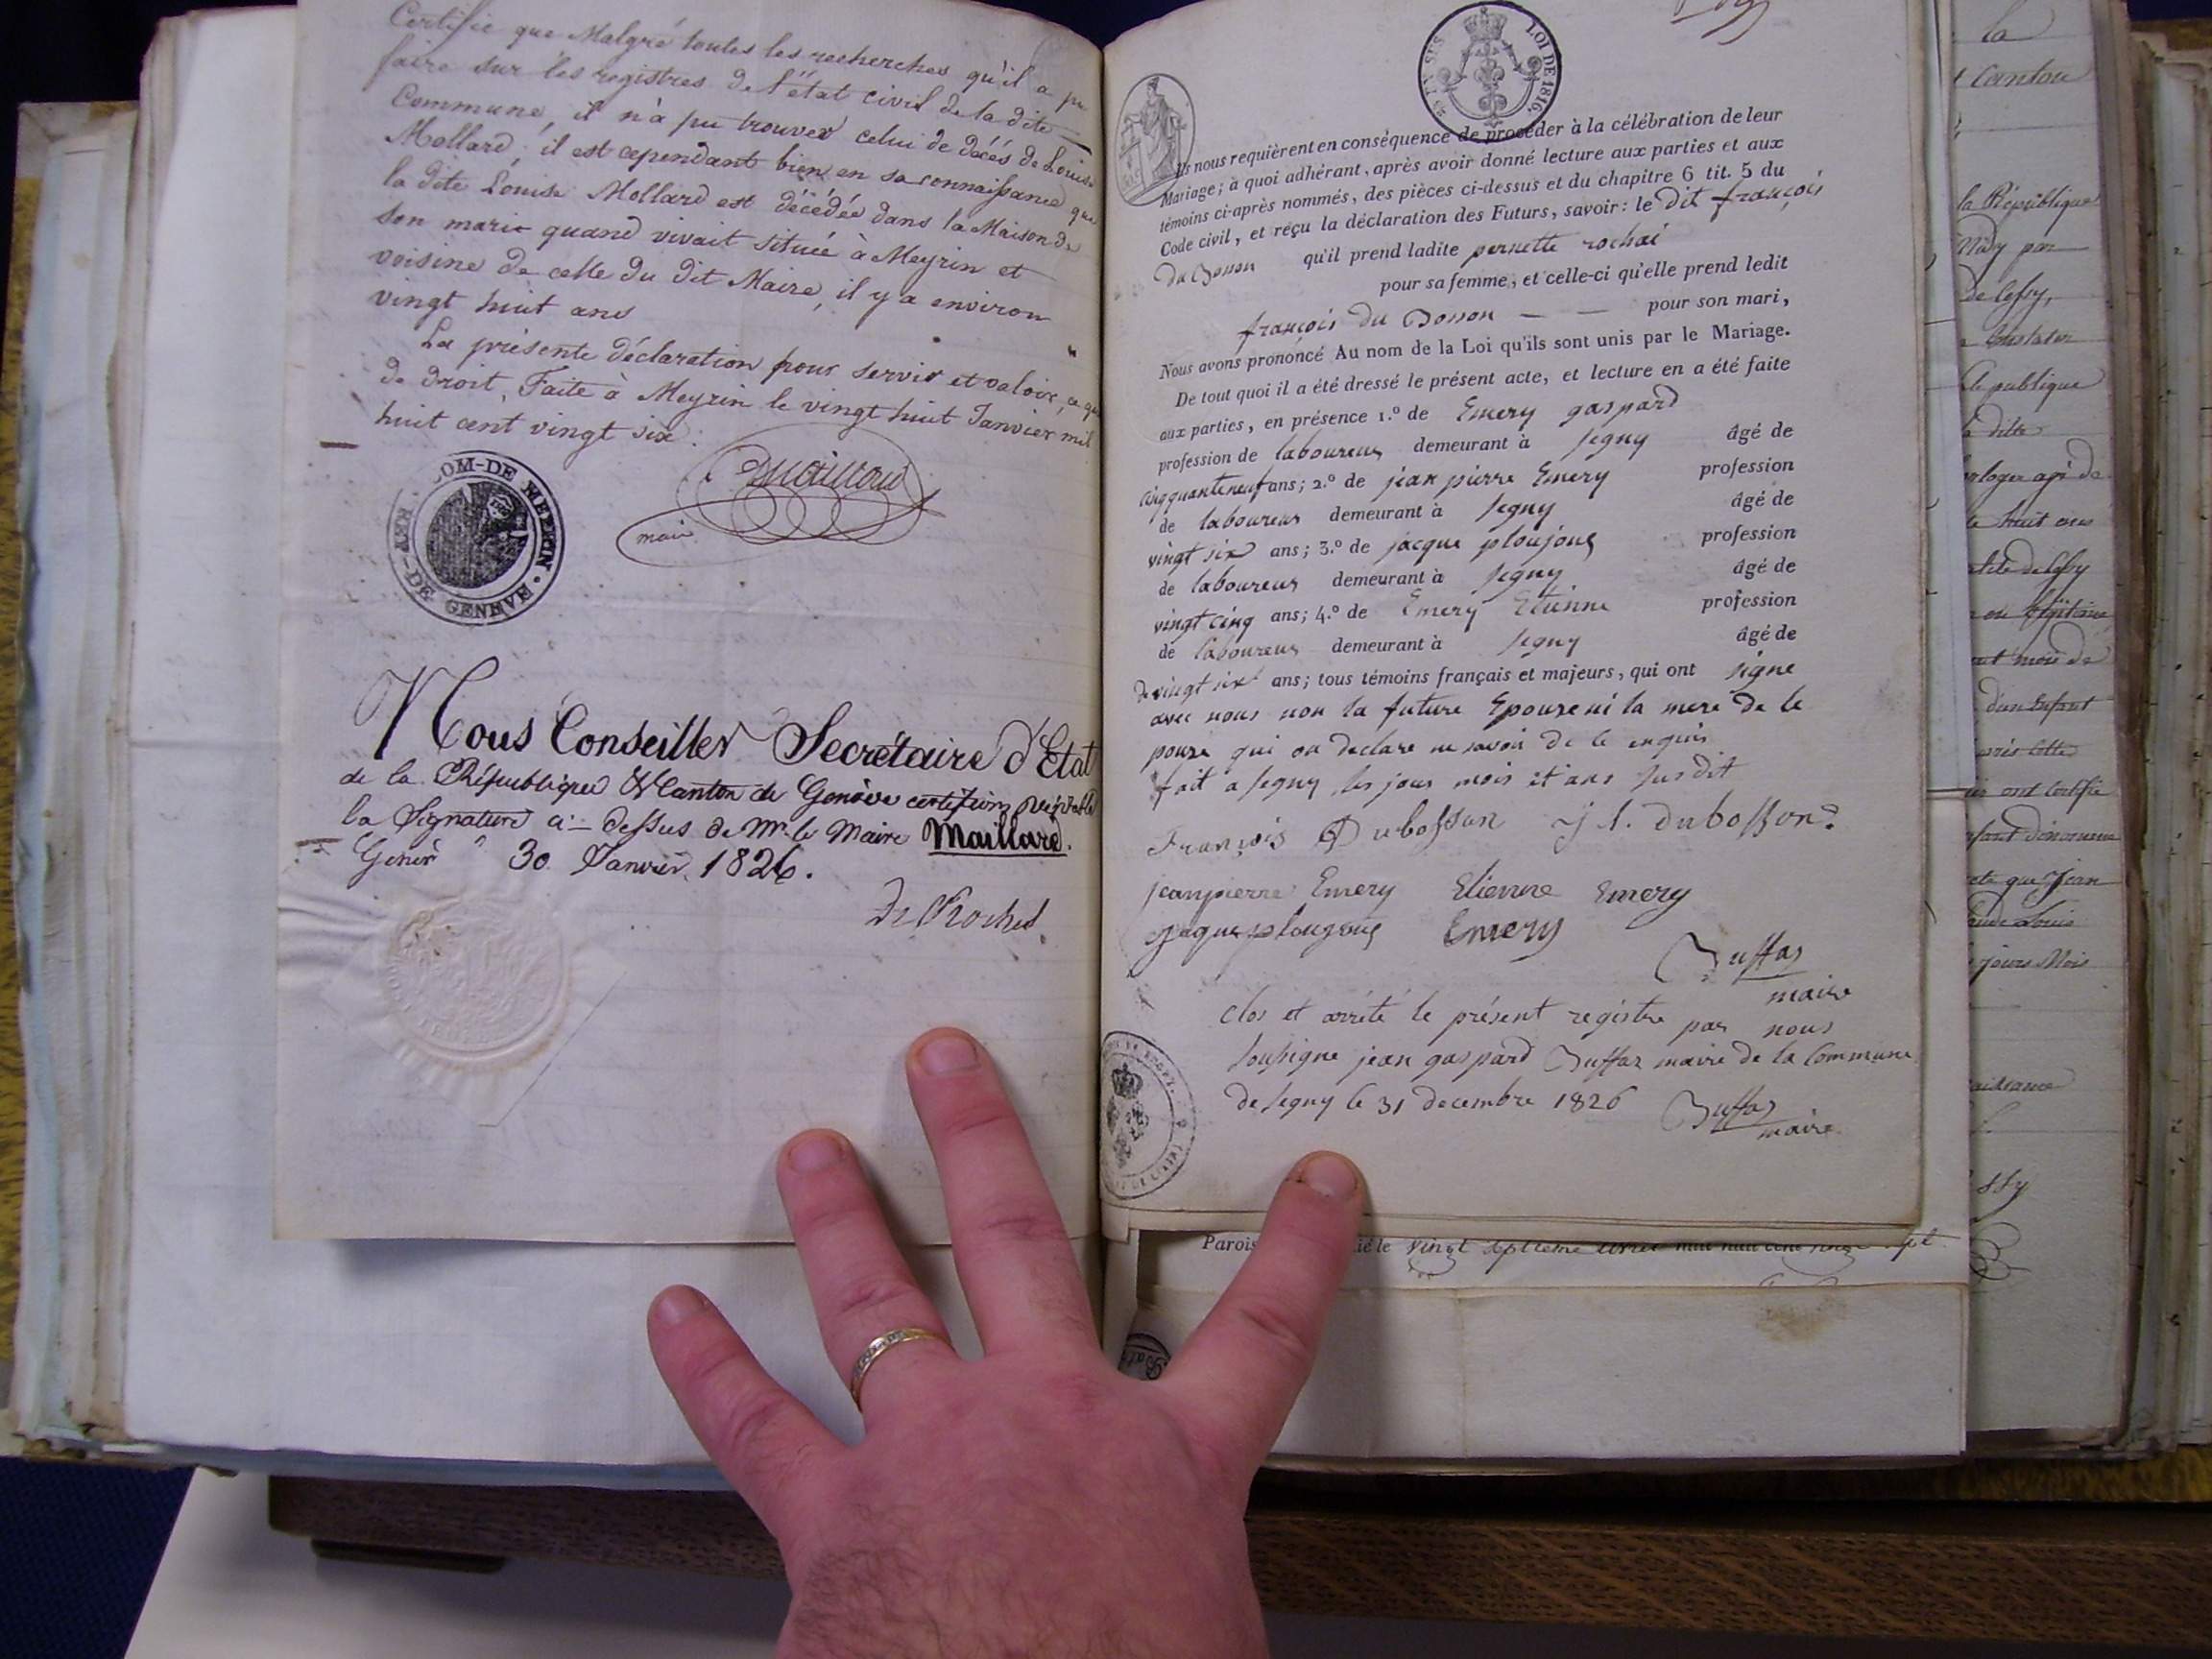 Certifie que Malgré toutes les recherches qu'il a pu
faire sur les registres de l'état civil de la dite
Commune, il n'a pu trouver celui de décés de Louise
Mollard; il est cependant bien en sa connaissance que
la dite Louise Mollard est décédée dans la Maison de
son mari quand vivait située à Meyrin et
voisine de celle du dit Maire, il y a environ
vingt huit ans
La présente déclaration pour servir et valoir, ce que
de droit, Faite à Meyrin le vingt huit Janvier mil
huit cent vingt six.
maire
COM-DE MEYRIN • REP-DE GENEVE
Nous Conseiller Secrétaire d'Etat
de la République & Canton de Genève certifions véritable
la Signature ci-dessus de Mr. le Maire Maillard.
Genève 30 Janvier 1826.
De Roches
LOI DE 1816.
Ils nous requièrent en conséquence de procéder à la célébration de leur
Mariage; à quoi adhérant, après avoir donné lecture aux parties et aux
témoins ci-après nommés, des pièces ci-dessus et du chapitre 6 tit. 5 du
Code civil, et reçu la déclaration des Futurs, savoir: le dit françois
du Bosson qu'il prend ladite pernette rochai
pour sa femme, et celle-ci qu'elle prend ledit
françois du Bosson — — pour son mari,
Nous avons prononcé Au nom de la Loi qu'ils sont unis par le Mariage.
De tout quoi il a été dressé le présent acte, et lecture en a été faite
aux parties, en présence 1.º de Emery gaspard
profession de laboureur demeurant à segny âgé de
cinquanteneuf ans; 2.º de jean pierre Emery profession
de laboureur demeurant à segny âgé de
vingt six ans; 3.º de jacque ploujoug profession
de laboureur demeurant à segny âgé de
vingt cinq ans; 4.º de Emery Etienne profession
de laboureur demeurant à segny âgé de
de vingt six ans; tous témoins français et majeurs, qui ont signe
avec nous non la future Epouse ni la mere de le
pouse qui on declare ne savoir de le enquis
fait a segny les jour mois et ans susdit
François Dubosson j l. dubosson
jeanpierre Emery Etienne Emery
jaque plougoug Emery
Buffaz
maire
clos et arrété le présent registre par nous
soussigne jean gaspard Buffaz maire de la Commune
de segny le 31 decembre 1826 Buffaz
maire
Parois
la
Canton
la République
de Cessy,
publique
la dite
horloger agé de
huit ans
Légitime
d'un Enfant
ont certifié
acte que Jean
jours Mois